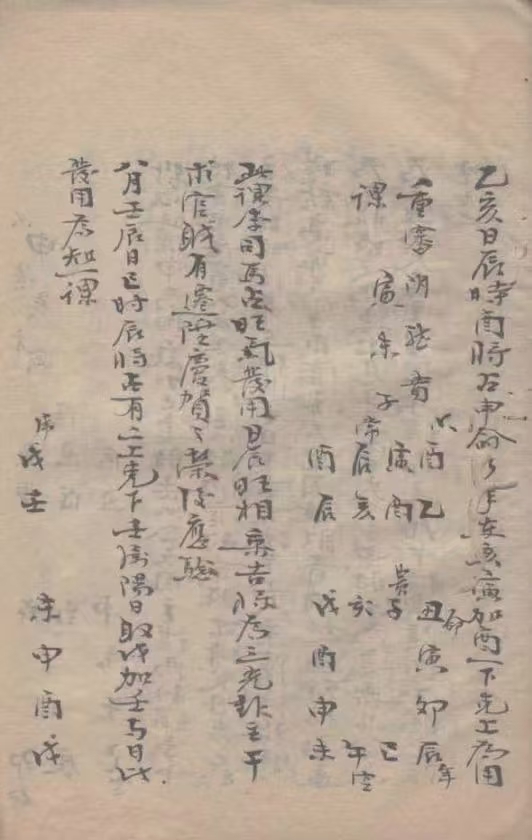 乙亥日辰時酉將占申命行年在亥寅加酉一下克上為用
重審
六酉乙
丑命寅卯辰年
課
寅未子
寅酉
貴子
巳
常辰亥
亥
午空
酉辰
戌酉申未
此課李司馬占旺氣發用日辰旺相乘吉將為三光卦主干
求官職有遷陞慶賀之榮後應驗
八月壬辰日巳時辰將占有二上克下壬為陽日取戌加壬與日比
發用為知一課
虎戌壬
未申酉戌